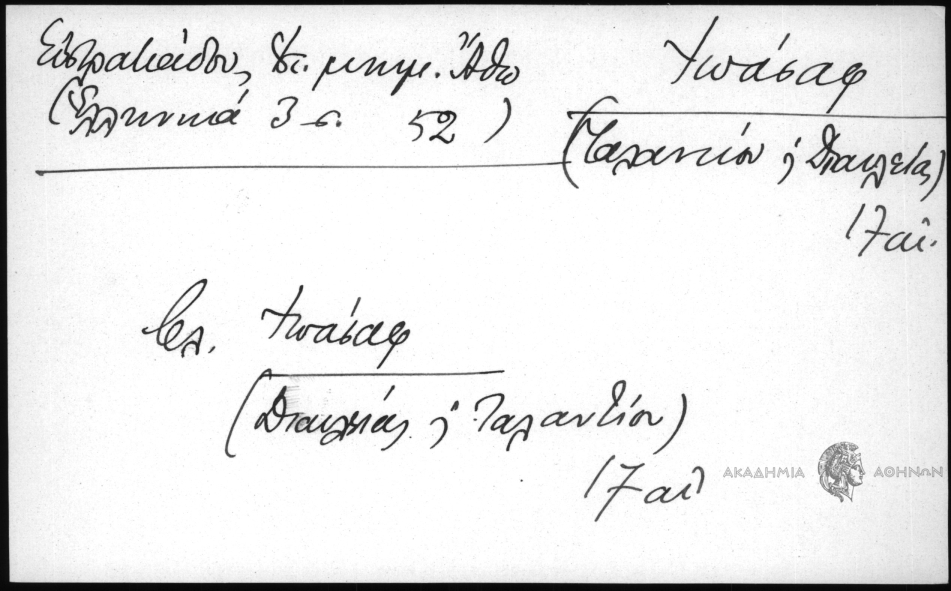 Εὐστρατιάδου, Ἐπ. μνημ. Ἄθω
(Ἑλληνικά 3 σ. 52)
Ἰωάσαφ
(Ταλαντίου ἢ Διαυλείας)
17 αἰ.
βλ. Ἰωάσαφ
(Διαυλείας ἢ Ταλαντίου)
17 αἰ
ΑΚΑΔΗΜΙΑ ΑΘΗΝΩΝ